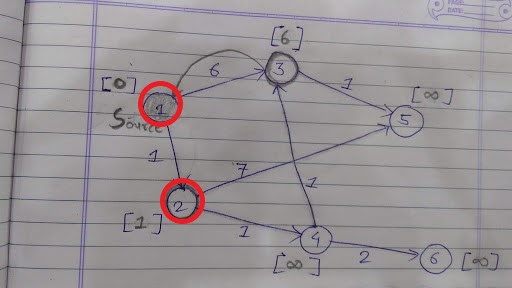 PAGE:
DATE:
[6]
3
6
1
[0]
[∞]
1
5
Source
1
7
2
1
[1]
1
4
2
6
[∞]
[∞]